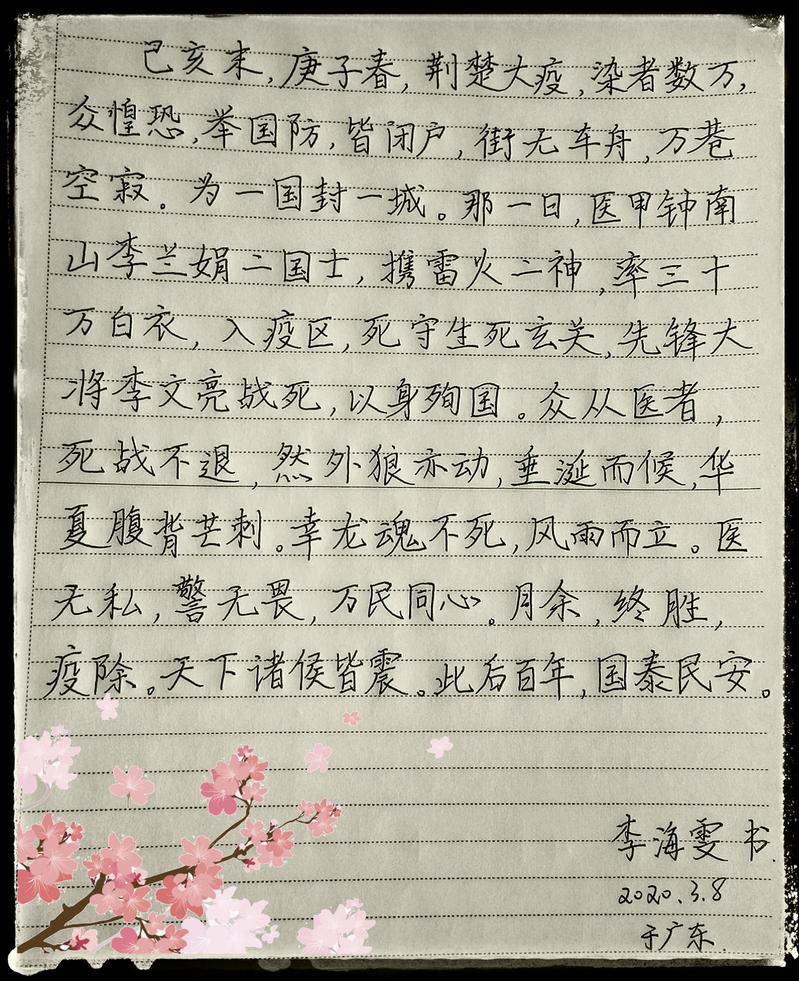 己亥末，庚子春，荆楚大疫，染者数万，
众惶恐，举国防，皆闭户，街无车舟，万巷
空寂。为一国封一城。那一日，医甲钟南
山李兰娟二国士，携雷火二神，率三十
万白衣，入疫区，死守生死玄关，先锋大
将李文亮战死，以身殉国。众从医者，
死战不退，然外狼亦动，垂涎而候，华
夏腹背芒刺。幸龙魂不死，风雨而立。医
无私，警无畏，万民同心。月余，终胜，
疫除。天下诸侯皆震。此后百年，国泰民安。
李海雯书.
2020.3.8
于广东.